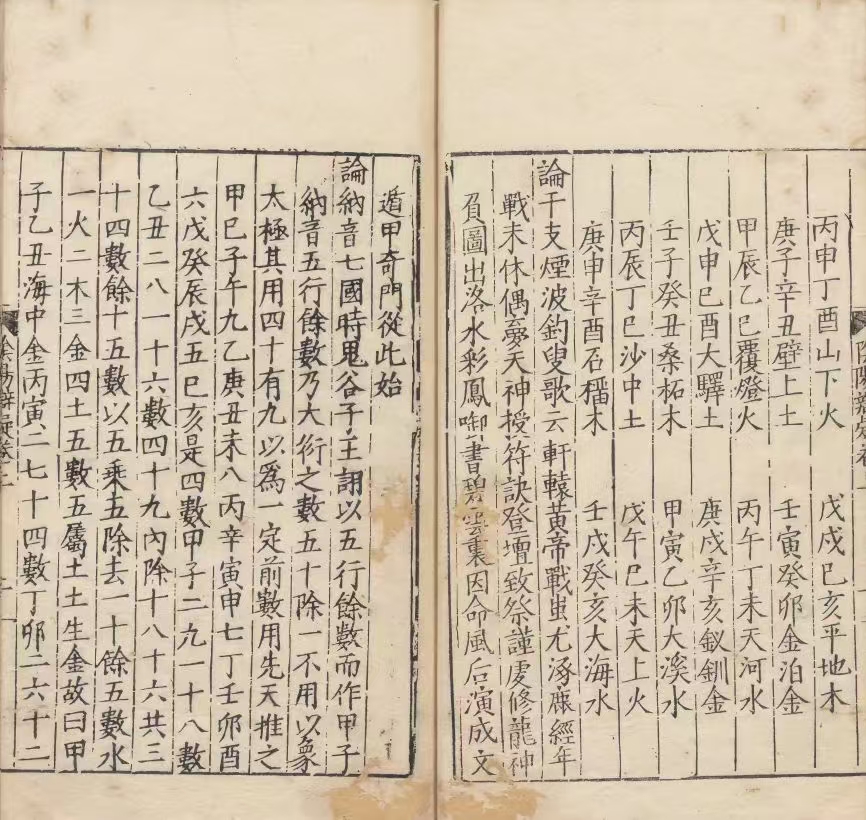 丙申丁酉山下火 戊戌巳亥平地木
庚子辛丑壁上土 壬寅癸卯金泊金
甲辰乙巳覆燈火 丙午丁未天河水
戊申巳酉大驛土 庚戌辛亥釵釧金
壬子癸丑桑柘木 甲寅乙卯大溪水
丙辰丁巳沙中土 戊午巳未天上火
庚申辛酉石橊木 壬戌癸亥大海水
論干支煙波釣叟歌云軒轅黃帝戰蚩尤涿鹿經年
戰未休偶夢天神授符訣登壇致祭謹虔修龍神
負圖出洛水彩鳳啣書碧雲裏因命風后演成文
遁甲奇門從此始
論納音七國時鬼谷子王詡以五行餘數而作甲子
納音五行餘數乃大衍之數五十除一不用以象
太極其用四十有九以為一定前數用先天推之
甲巳子午九乙庚丑未八丙辛寅申七丁壬卯酉
六戊癸辰戌五巳亥是四數甲子二九一十八數
乙丑二八一十六數四十九內除十八十六共三
十四數餘十五數以五乘五除去一十餘五數水
一火二木三金四土五數五屬土土生金故曰甲
子乙丑海中金丙寅二七十四數丁卯二六十二